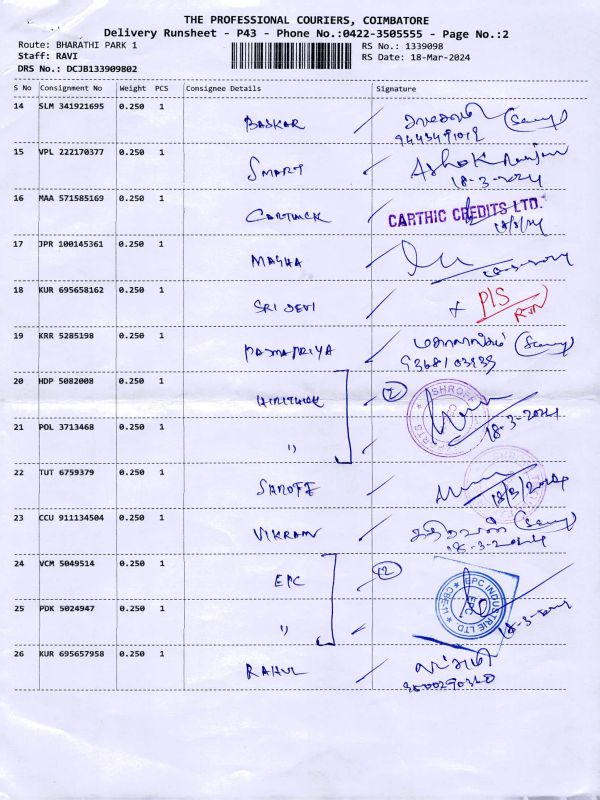 THE PROFESSIONAL COURIERS, COIMBATORE
Delivery Runsheet - P43 - Phone No.:0422-3505555 - Page No.:2
Route: BHARATHI PARK 1 RS No.: 1339098
Staff: RAVI RS Date: 18-Mar-2024
DRS No.: DCJB133909802
S No Consignment No Weight PCS Consignee Details Signature
14 SLM 341921695 0.250 1 BASKAR
15 VPL 222170377 0.250 1 SMART Ashok
18-3-2024
16 MAA 571585169 0.250 1 CARTHICK CARTHIC CREDITS LTD.
17 JPR 100145361 0.250 1 MAGHA
18 KUR 695658162 0.250 1 SRI DEVI PIS
RTN
19 KRR 5285198 0.250 1 PADMAPRIYA
20 HDP 5082008 0.250 1 HIRITHICK 2 SHROFF
18-3-2024
21 POL 3713468 0.250 1 "
22 TUT 6759379 0.250 1 SAROFF 18/3/2024
23 CCU 911134504 0.250 1 VIKRAM
18-3-2024
24 VCM 5049514 0.250 1 EPC 2 EPC INDUSTRIE LTD. CBE-11
25 PDK 5024947 0.250 1 "
26 KUR 695657958 0.250 1 RAHUL